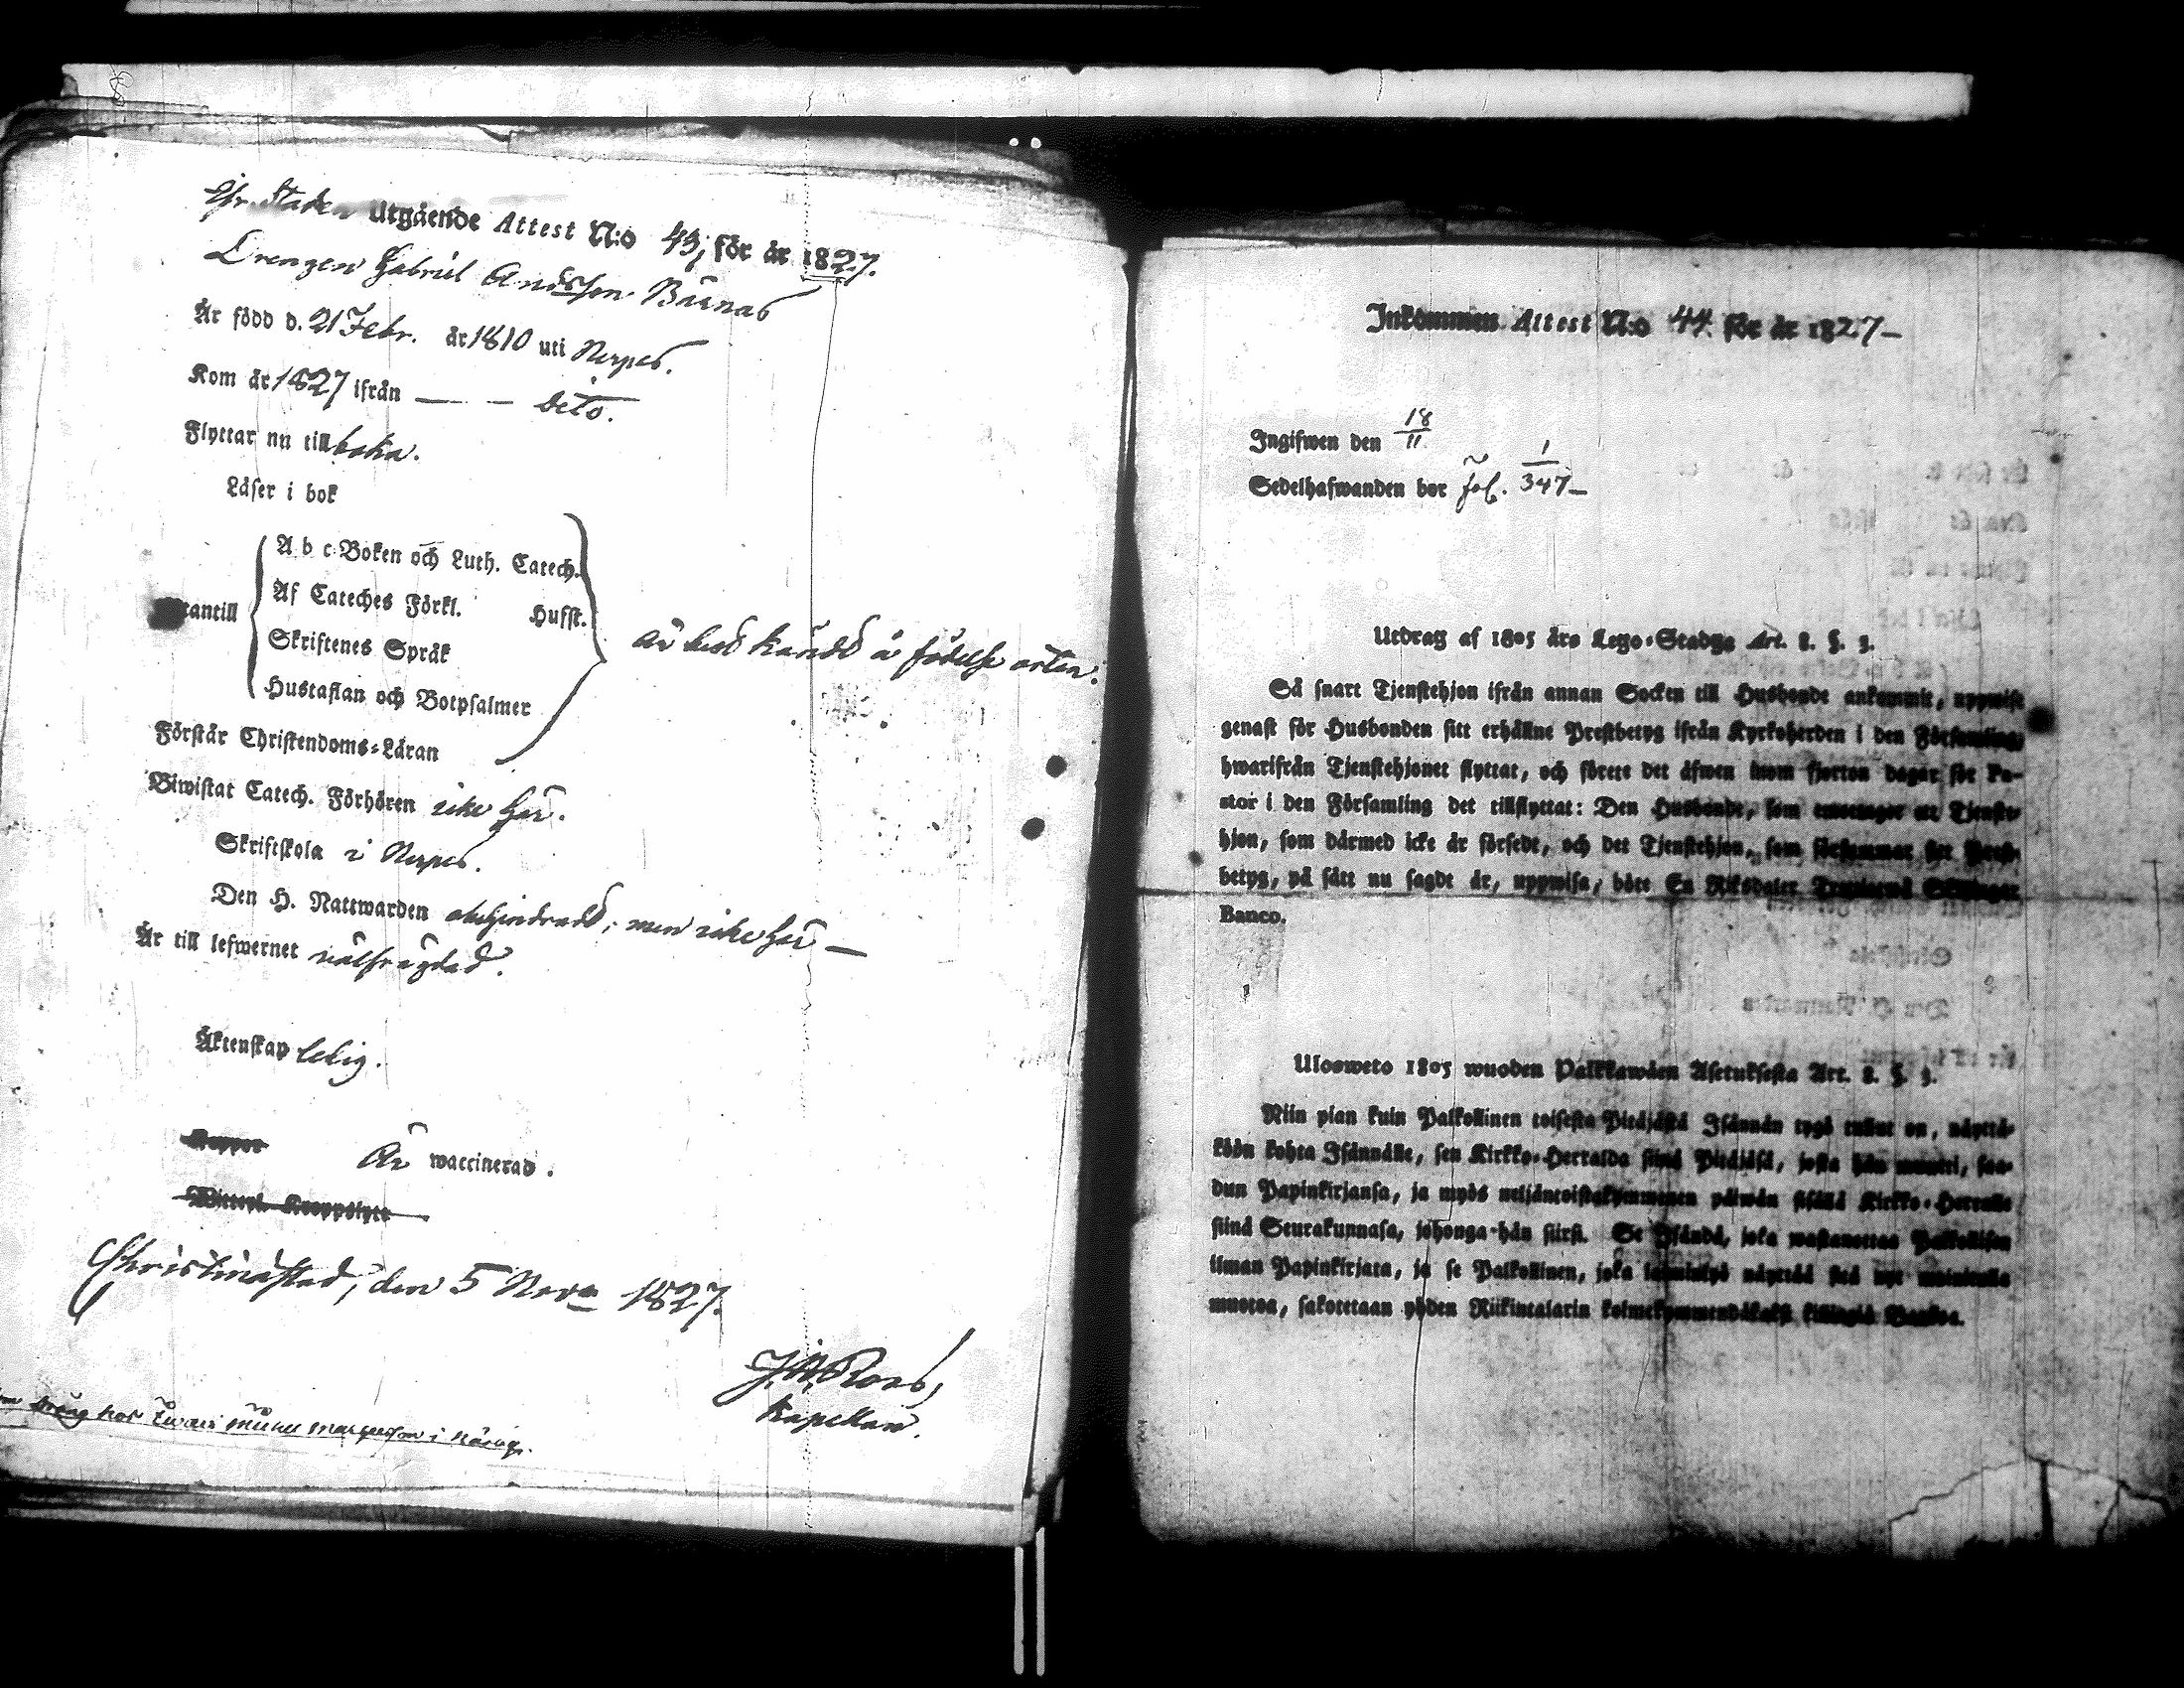 Chr.Staden Utgående Attest N:o 43, för år 1827.
Drengen Gabriel Andsson Bäsnäs
Är född d. 21 Febr. år 1810 uti Nerpes.
Kom år 1827 ifrån — — dito.
Flyttar nu till baka.
Läser i bok
A b c-Boken och Luth. Catech.
Af Cateches Förkl. Husst.
Utantill
Skriftenes Språk
Hustaflan och Botpsalmer
är best kändt å födelse orten.
Förstår Christendoms-Läran
Biwistat Catech. Förhören icke här.
Skriftskola i Nerpes.
Den H. Nattwarden obehindradt, men icke här —
Är till lefwernet välfrägdad.
Äktenskap ledig.
Koppor Är waccinerad.
Christinæstad, den 5 Nov. 1827.
Kapellan.
Inkommen Attest N:o 44. för år 1827 —
Ingifwen den 18/11
Sedelhafwanden bor fol. 1/347 —
Utdrag af 1805 års Lego-Stadga Art. 2. §. 3.
Så snart Tjenstehjon ifrån annan Socken till Husbonde ankommit, uppwise
genast för Husbonden sitt erhållne Prestbetyg ifrån Kyrkoherden i den Församling,
hwarifrån Tjenstehjonet flyttat, och förete det äfwen inom fjorton dagar för Pa-
stor i den Församling det tillflyttat: Den Husbonde, som emottager ett Tjenste-
hjon, som därmed icke är försedt, och det Tjenstehjon, som försummar sitt Prest-
betyg, på sätt nu sagdt är, uppwisa, böte En Riksdaler Trettiotwå Skillingar
Banco.
Ulosweto 1805 wuoden Palkkawäen Asetuksesta Art. 2. §. 3.
Niin pian kuin Palkollinen toisesta Pitäjästä Isännän tygö tullut on, näyttä-
köön kohta Isännälle, sen Kirkko-Herralda siinä Pitäjäsä, josta hän muutti, saa-
dun Papinkirjansa, ja myös neljäntoistakymmenen päiwän sisällä Kirkko-Herralle
siinä Seurakunnasa, johonga hän siirsi. Se Isändä, joka wastanottaa Palkollisen
ilman Papinkirjata, ja se Palkollinen, joka laiminlyö näyttää sitä nyt mainitulla
muotoa, sakotetaan yhden Riikintalarin kolmekymmendäkaksi killingiä Bankoa.